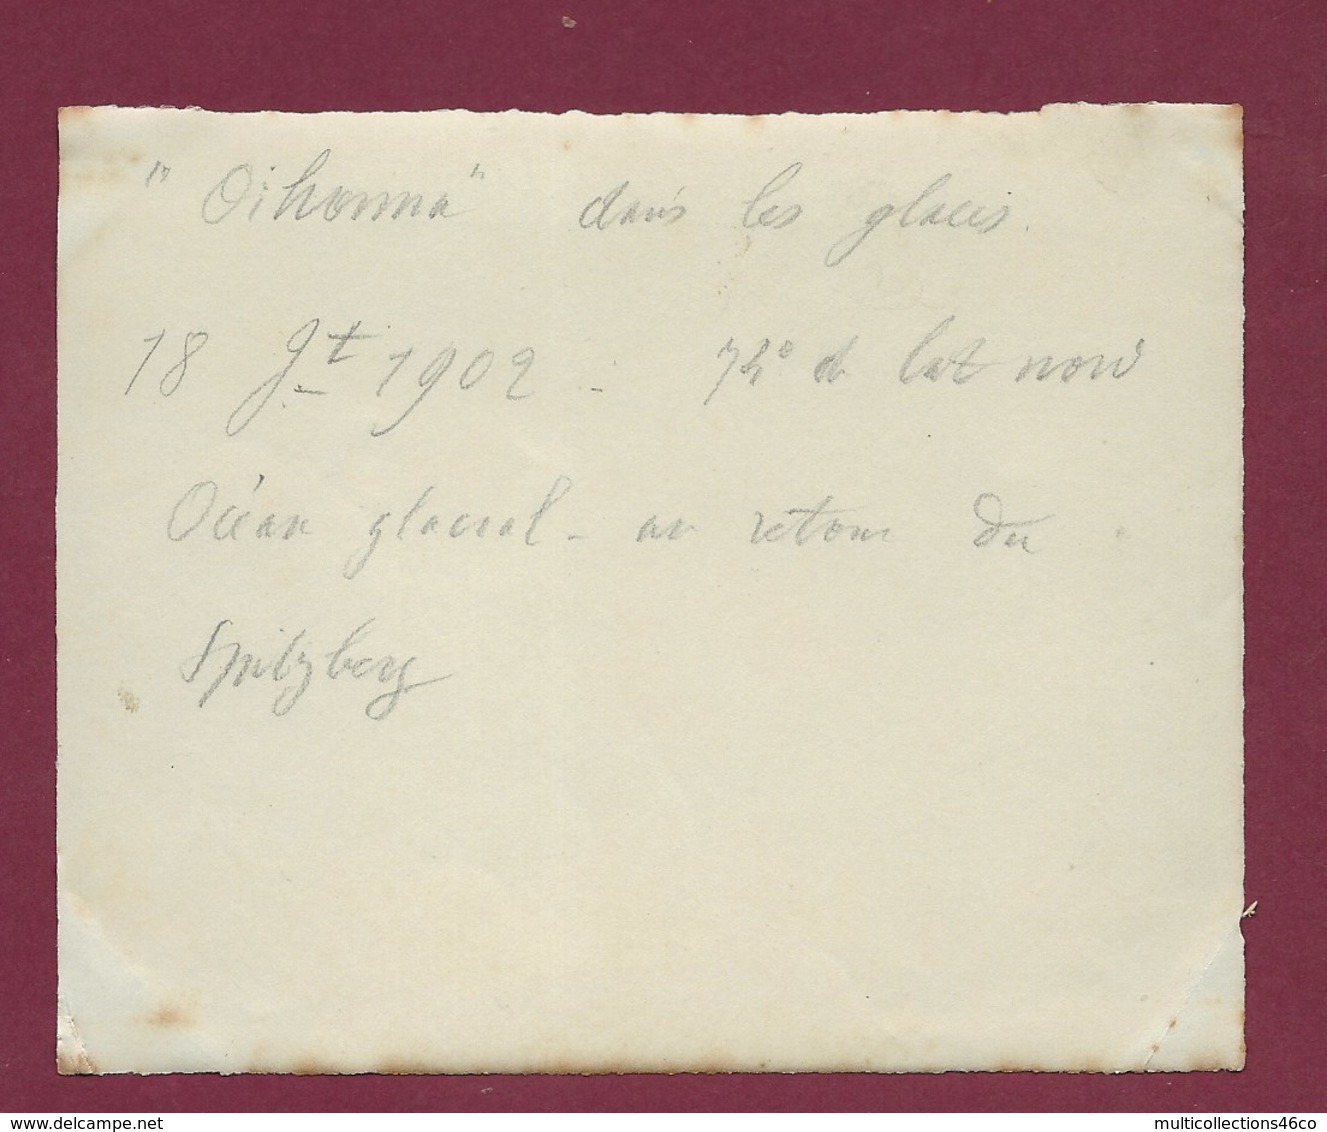 "Oihonna" dans les glaces.
18 Jt 1902 - 74° de lat nord
Océan glacial - au retour du
Spitzberg
www.delcampe.net
multicollections46co